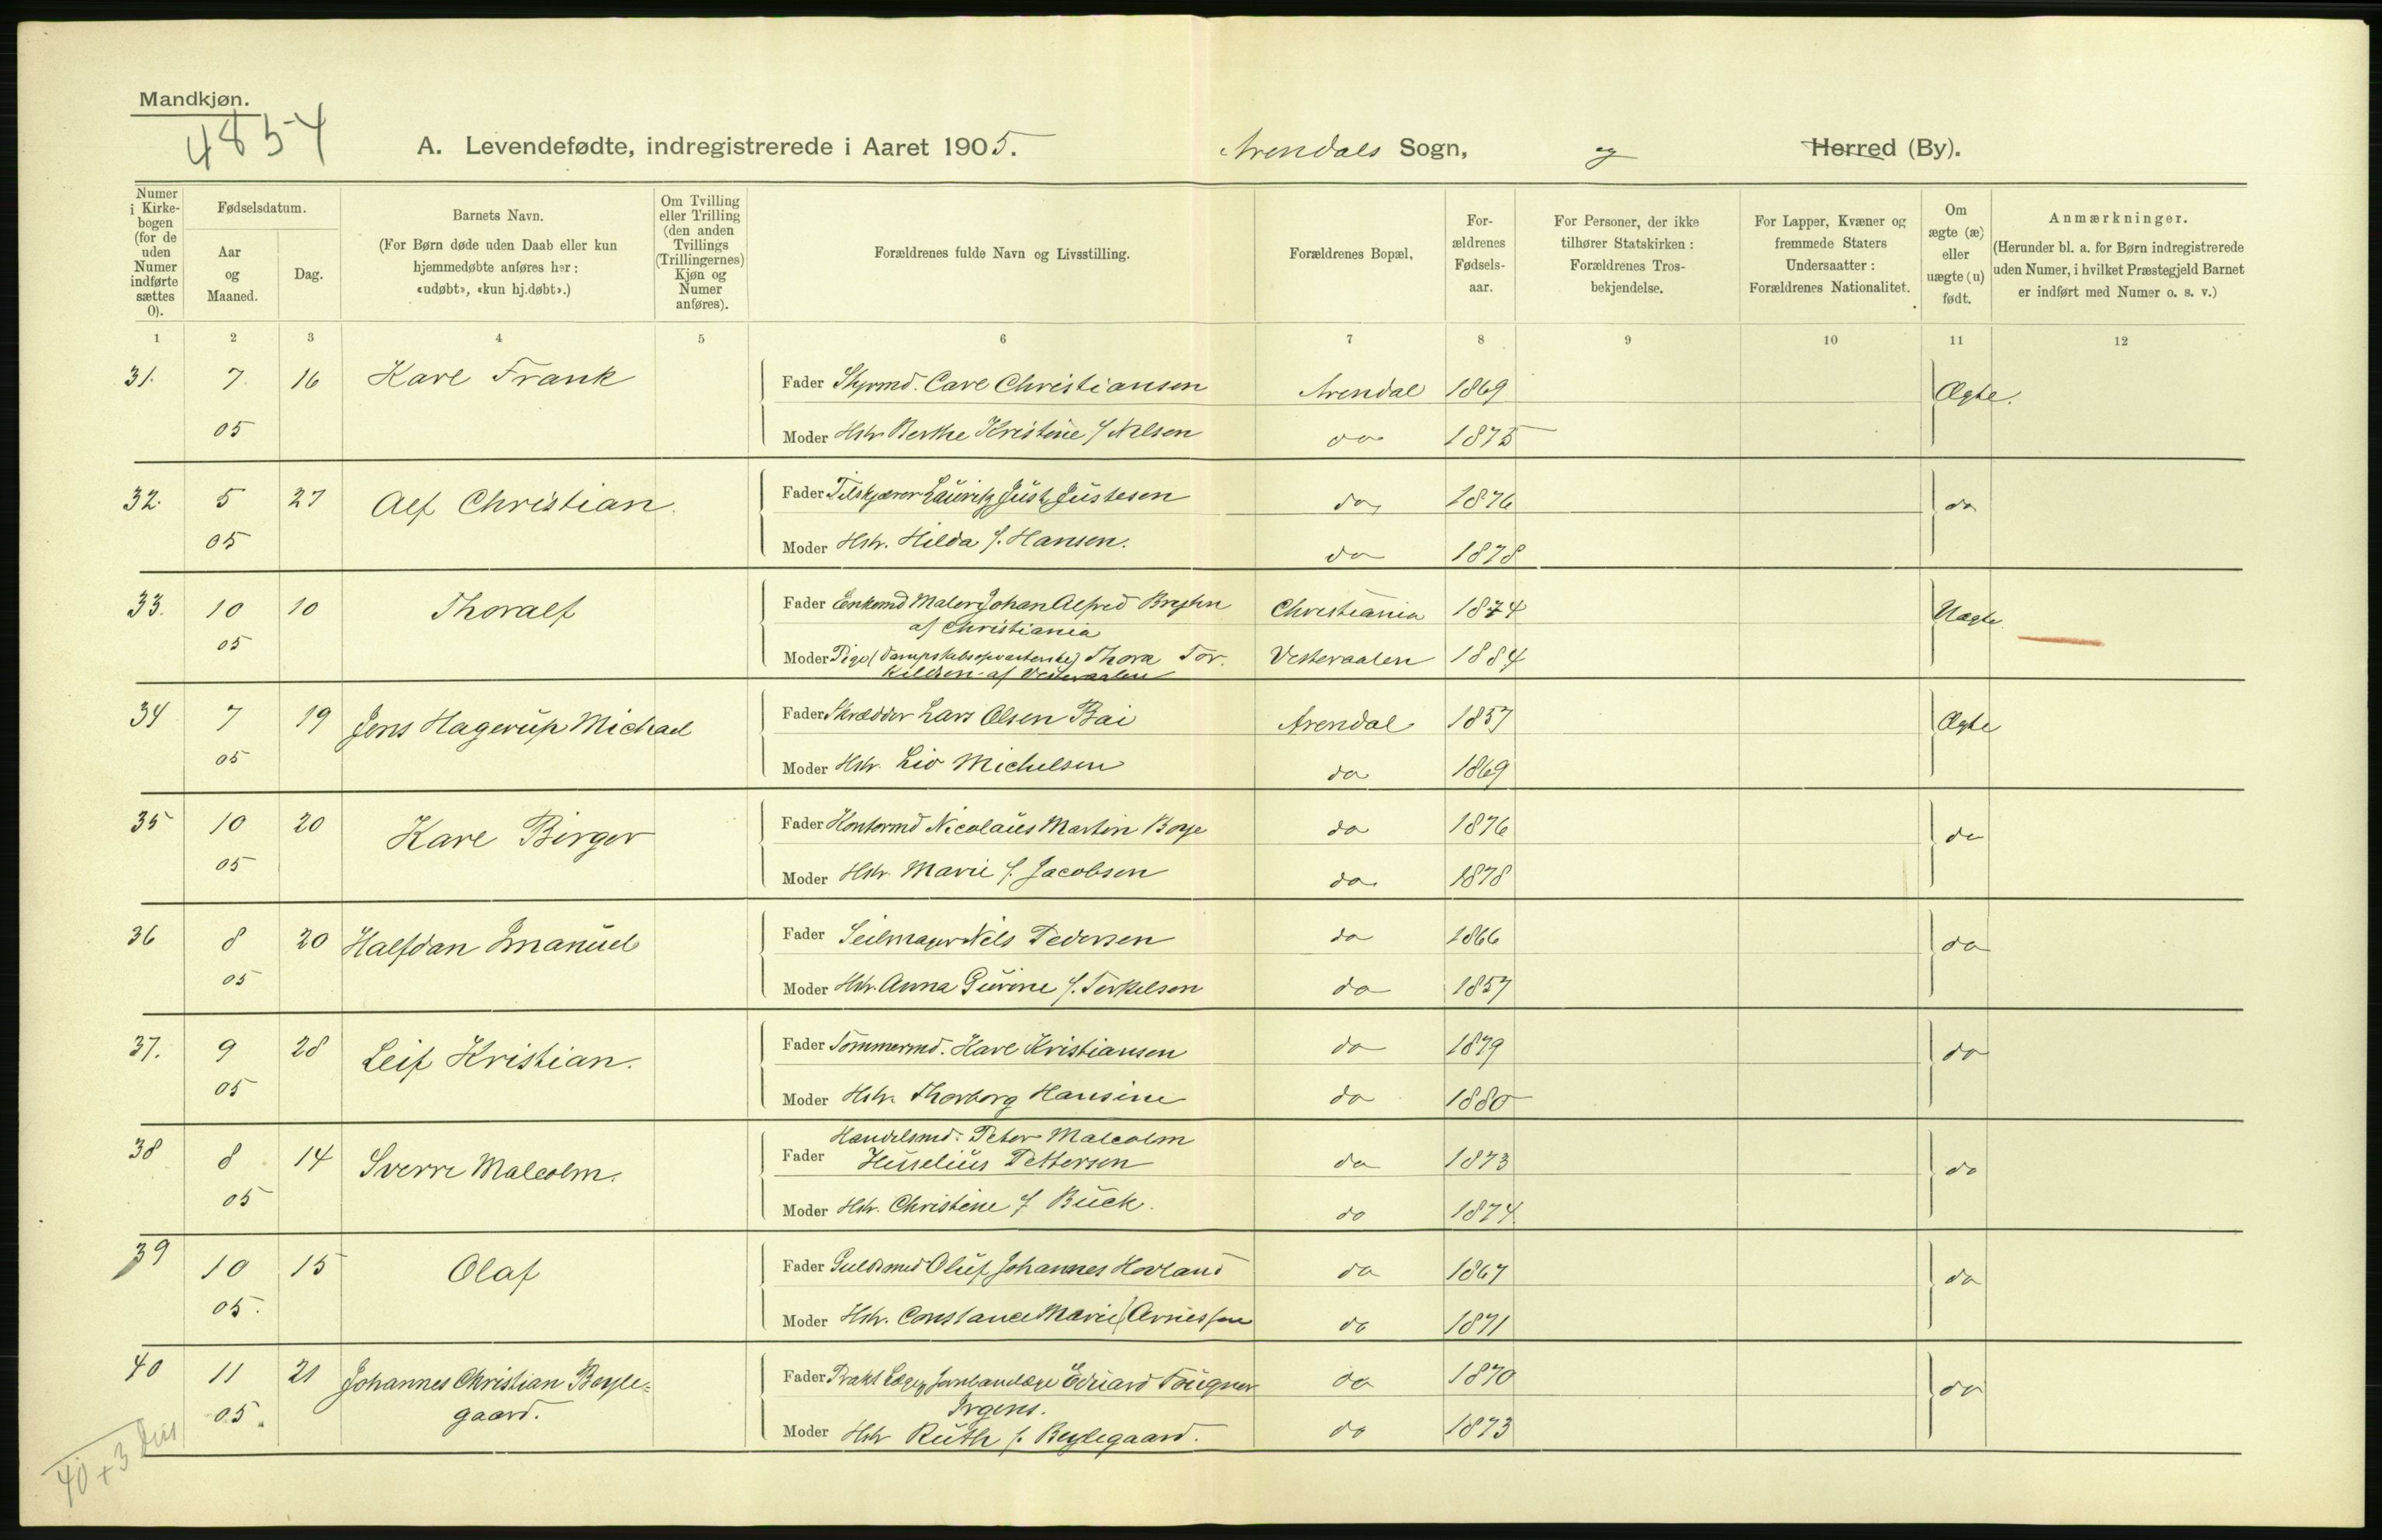 Mandkjøn.
4854
A. Levendefødte, indregistrerede i Aaret 1905.
Arendals Sogn, og Herred (By).
Numer i Kirkebogen (for de uden Numer indførte sættes 0).
Fødselsdatum.
Aar og Maaned.
Dag.
Barnets Navn.
(For Børn døde uden Daab eller kun hjemmedøbte anføres her: «udøbt», «kun hj.døbt».)
Om Tvilling eller Trilling (den anden Tvillings (Trillingernes) Kjøn og Numer anføres).
Forældrenes fulde Navn og Livsstilling.
Forældrenes Bopæl,
Forældrenes Fødselsaar.
For Personer, der ikke tilhører Statskirken: Forældrenes Trosbekjendelse.
For Lapper, Kvæner og fremmede Staters Undersaatter: Forældrenes Nationalitet.
Om ægte (æ) eller uægte (u) født.
Anmærkninger.
(Herunder bl. a. for Børn indregistrerede uden Numer, i hvilket Præstegjeld Barnet er indført med Numer o. s. v.)
1 2 3 4 5 6 7 8 9 10 11 12
31. 7. 16 Karl Frank Fader Styrmd. Carl Christiansen Arendal 1869 Ægte.
05 Moder Hstr Berthe Kristine f Nilsen do 1875
32. 5 27 Alf Christian. Fader Tilskjærer Lauritz Just Justesen do 1876 do
05 Moder Hstr. Hilda f. Hansen. do 1878
33. 10 10 Thoralf Fader Enkemd Maler Johan Alfred Christiania 1874 Uægte
af Christiania
05 Moder Pige (Dampskibsopvarterske) Thora Tor- Vesteraalen 1884
kildsen af Vesteraalen
34 7 19 Jens Hagerup Michael Fader Skrædder Lars Olsen Bai Arendal 1857 Ægte
05 Moder Hstr. Liv Michelsen do 1869
35 10 20 Karl Birger Fader Kontormd Nicolaus Martin Boye do 1876 do
05 Moder Hstr. Marie f. Jacobsen do. 1878
36 8 20 Halfdan Emanuel Fader Seilmager Nils Pedersen do 1866 do
05 Moder Hstr. Anna Gurine f. Terkelsen do 1857
37. 9 28 Leif Kristian. Fader Tømmermd. Karl Kristiansen do 1879 do
05 Moder Hstr. Thorborg Hansine do 1880
38 8 14 Sverre Malcolm. Handelsmd. Peter Malcolm
Fader Huselius Pettersen do 1873 do
05 Moder Hstr. Christine f Buck. do 1874
39 10 15 Olaf Fader Guldsmed Oluf Johannes Hovland do 1867 do
05. Moder Hstr. Constance Marie f Arnesen do 1871
40 11 21 Johannes Christian Beyle- Fader Prakt Læge Eduard Fougner do 1870 do
gaard. Irgens.
05. Moder Hstr Ruth f. Beylegaard. do 1873
40 + 3